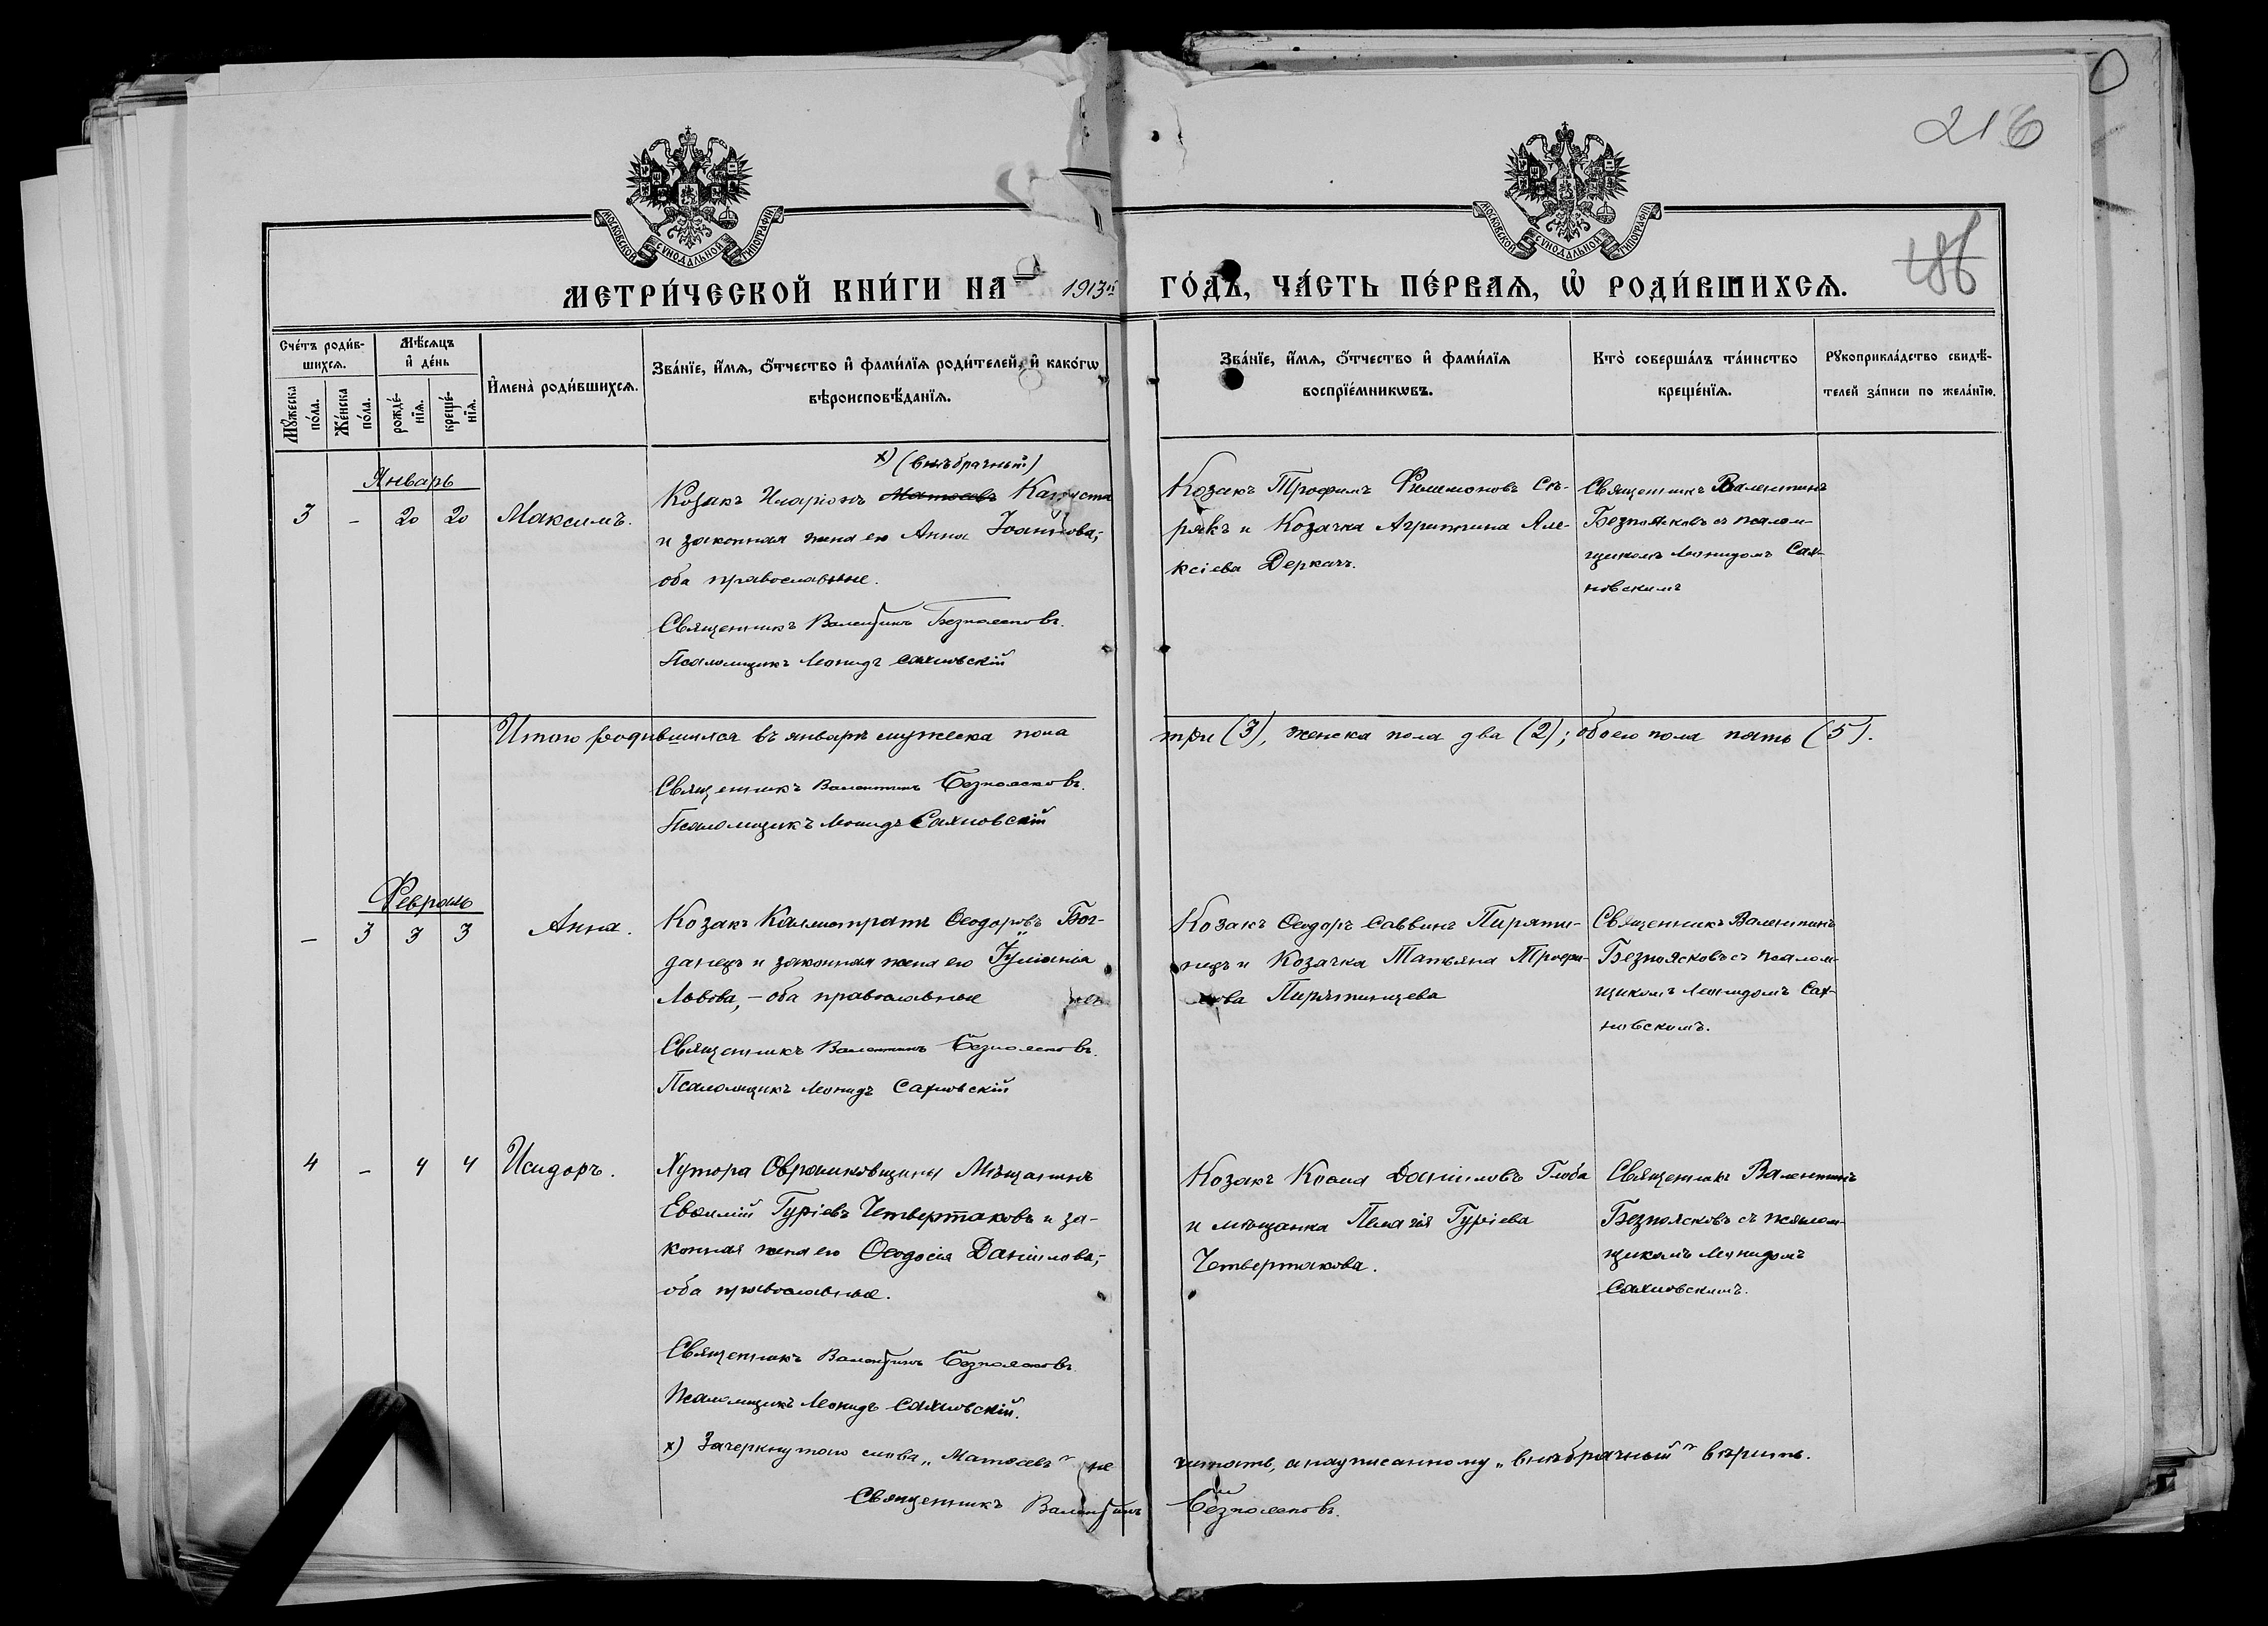 216
186
МОСКОВСКОЙ СУНОДАЛЬНОЙ ТИПОГРАФІИ
МОСКОВСКОЙ СУНОДАЛЬНОЙ ТИПОГРАФІИ
МЕТРИ́ЧЕСКОЙ КНИ́ГИ НА 1913й ГО́ДЪ, ЧА́СТЬ ПЕ́РВАѦ, Ѡ҆ РОДИ́ВШИХСѦ.
Сче́тъ роди́в-
шихсѧ.
Мꙋ́жеска
по́ла.
Же́нска
по́ла.
Мѣ́сѧцъ
и҆ де́нь
рожде́-
нїѧ.
креще́-
нїѧ.
И҆мена̀ роди́вшихсѧ.
Зва́нїе, и҆́мѧ, ѻ҆́тчество и҆ фами́лїѧ роди́телей, и҆ како́гѡ
вѣроисповѣ́данїѧ.
Зва́нїе, и҆́мѧ, ѻ҆́тчество и҆ фами́лїѧ
воспрїе́мникѡвъ.
Кто̀ соверша́лъ та́инство
креще́нїѧ.
Рꙋкоприкла́дство свидѣ́-
телей за́писи по жела́нїю.
Январь
3 - 20 20 Максимъ.
х) (внѣбрачный)
Козакъ Иларіонъ Матѳеевъ Капуста
и законная жена его Анна Іоаннова,-
оба православные.
Священникъ Валентинъ Безпоясковъ.
Псаломщикъ Леонидъ Сахновскій
Козакъ Трофимъ Филимоновъ Сѣ-
рякъ и Козачка Агрипина Але-
ксіева Деркачъ.
Священникъ Валентинъ
Безпоясковъ съ псалом-
щикомъ Леонидомъ Сах-
новскимъ
Итого родившихся въ январѣ мужеска пола три (3), женска пола два (2); обоего пола пять (5).
Священникъ Валентинъ Безпоясковъ.
Псаломщикъ Леонидъ Сахновскій
Февраль
- 3 3 3 Анна.
Козакъ Каллистратъ Ѳеодоровъ Бог-
данецъ и законная жена его Іуліанія
Львова,- оба православные
Священникъ Валентинъ Безпоясковъ.
Псаломщикъ Леонидъ Сахновскій
Козакъ Ѳеодоръ Саввинъ Пиряти-
нецъ и Козачка Татьяна Трофи-
мова Пирятинцева
Священникъ Валентинъ
Безпоясковъ съ псалом-
щикомъ Леонидомъ Сах-
новскимъ.
4 - 4 4 Исидоръ.
Хутора Мѣщанинъ
Евѳимій Гуріевъ Четвертаковъ и за-
конная жена его Ѳеодосія Даніилова,-
оба православные.
Священникъ Валентинъ Безпоясковъ.
Псаломщикъ Леонидъ Сахновскій.
Козакъ Данііловъ Глоба
и мѣщанка Пелагія Гуріева
Четвертакова.
Священникъ Валентинъ
Безпоясковъ съ псалом-
щикомъ Леонидомъ
Сахновскимъ.
х) Зачеркнутого слова „Матѳеевъ" не читать, а надписанному „внѣбрачный" вѣрить.
Священникъ Валентинъ Безпоясковъ.